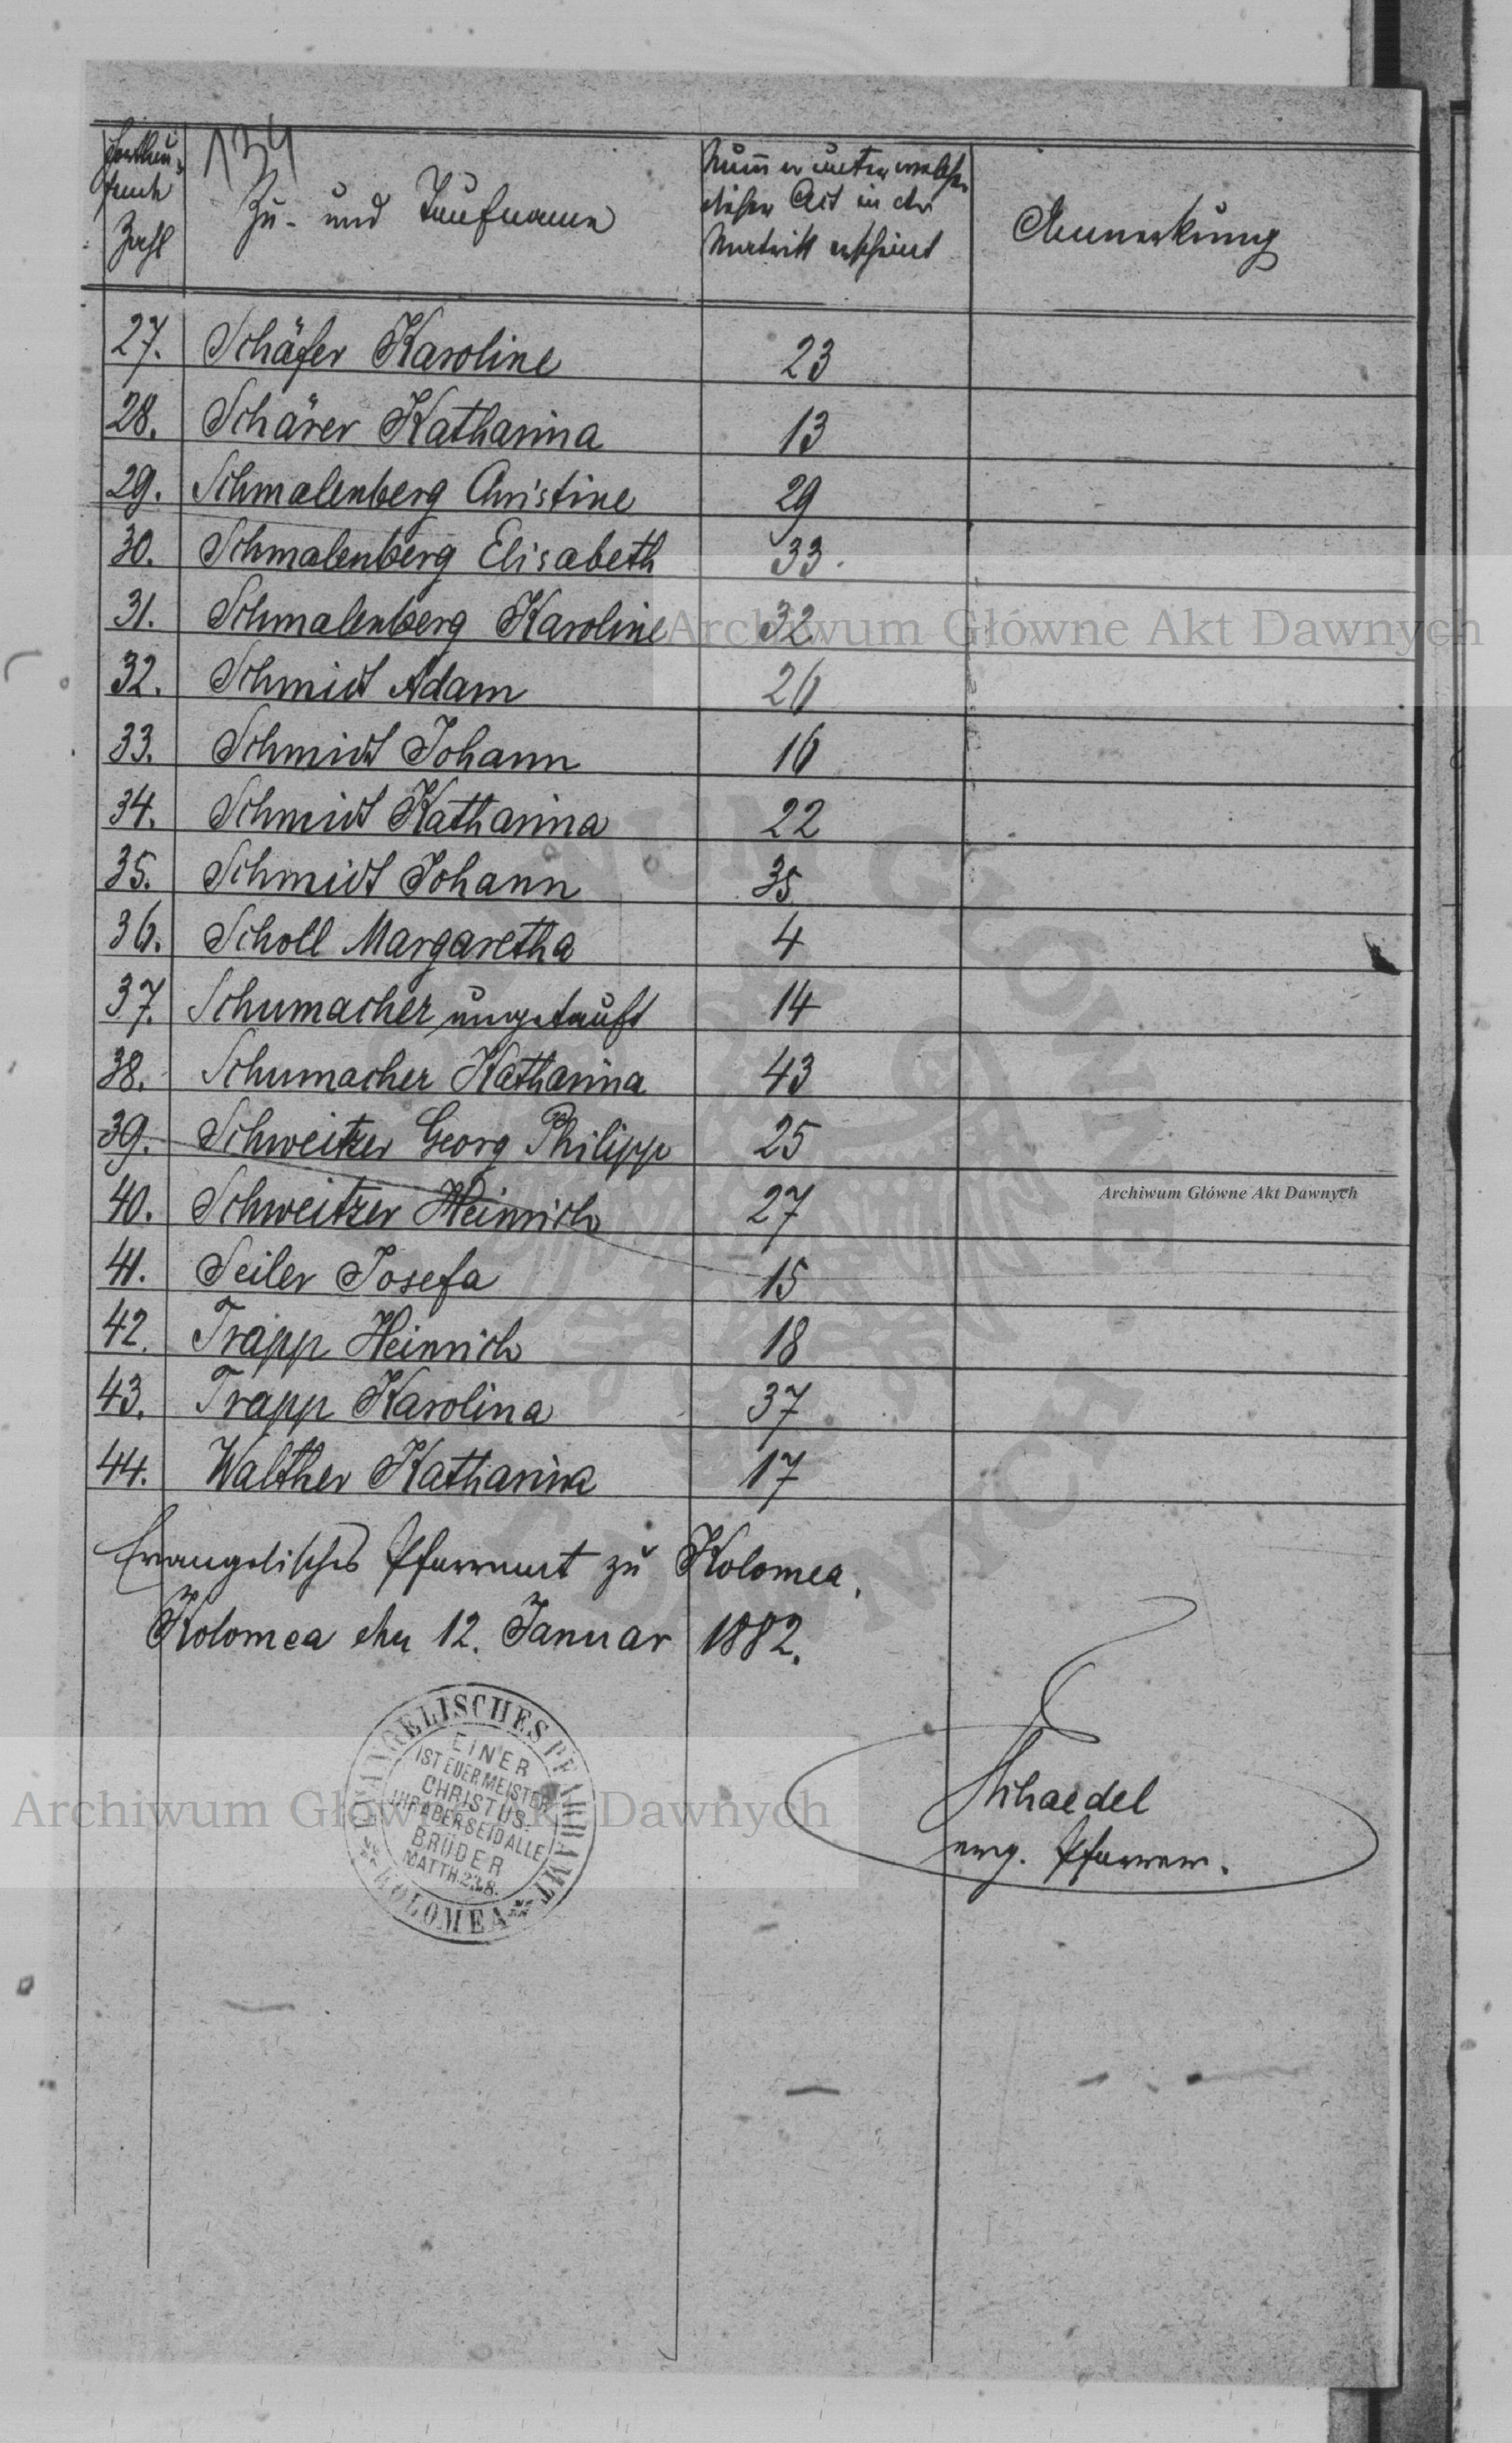 134
Fortlaufende Zahl
Zu- und Taufname
Nummer unter welcher
dieser Act in der
Matrik erscheint
Anmerkung
27. Schäfer Karoline 23
28. Schärer Katharina 13
29. Schmalenberg Christine 29
30. Schmalenberg Elisabeth 33.
31. Schmalenberg Karoline 32
32. Schmidt Adam 26
33. Schmidt Johann 16
34. Schmidt Katharina 22
35. Schmidt Johann 35
36. Scholl Margaretha 4
37. Schumacher ungetauft 14
38. Schumacher Katharina 43
39. Schweitzer Georg Philipp 25
40. Schweitzer Heinrich 27
41. Seiler Josefa 15
42. Trapp Heinrich 18
43. Trapp Karolina 37
44. Walther Katharina 17
Evangelisches Pfarramt zu Kolomea.
Kolomea den 12. Januar 1882.
EVANGELISCHES PFARRAMT
KOLOMEA
EINER
IST EUER MEISTER
CHRISTUS.
IHR ABER SEID ALLE
BRÜDER
MATTH. 23.8.
Schaedel
evg. Pfarrer.
Archiwum Główne Akt Dawnych
Archiwum Główne Akt Dawnych
Archiwum Główne Akt Dawnych